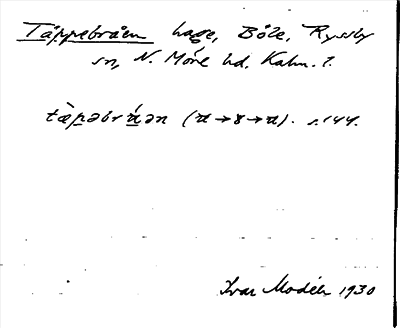 Täppebråen hage, Böle, Ryssby
sn, N. Möre hd, Kalm. l.
tæ̀pəbrá̱ən (a→8→a). s.144.
Ivar Modéer 1930